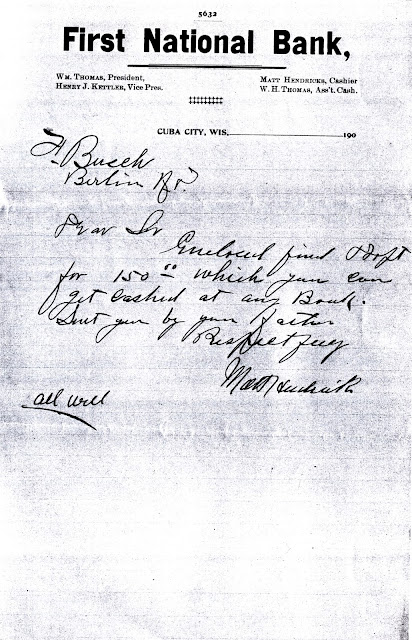 5632
First National Bank,
WM. THOMAS, President,
HENRY J. KETTLER, Vice Pres.
MATT HENDRICKS, Cashier
W. H. THOMAS, Ass't. Cash.
CUBA CITY, WIS, 190
Busch
Berlin
Dear Sir
Enclosed find draft
for 150 00 which you can
get cashed at any Bank.
Sent you by your Father
Respectfully
Matt Hendricks
all well